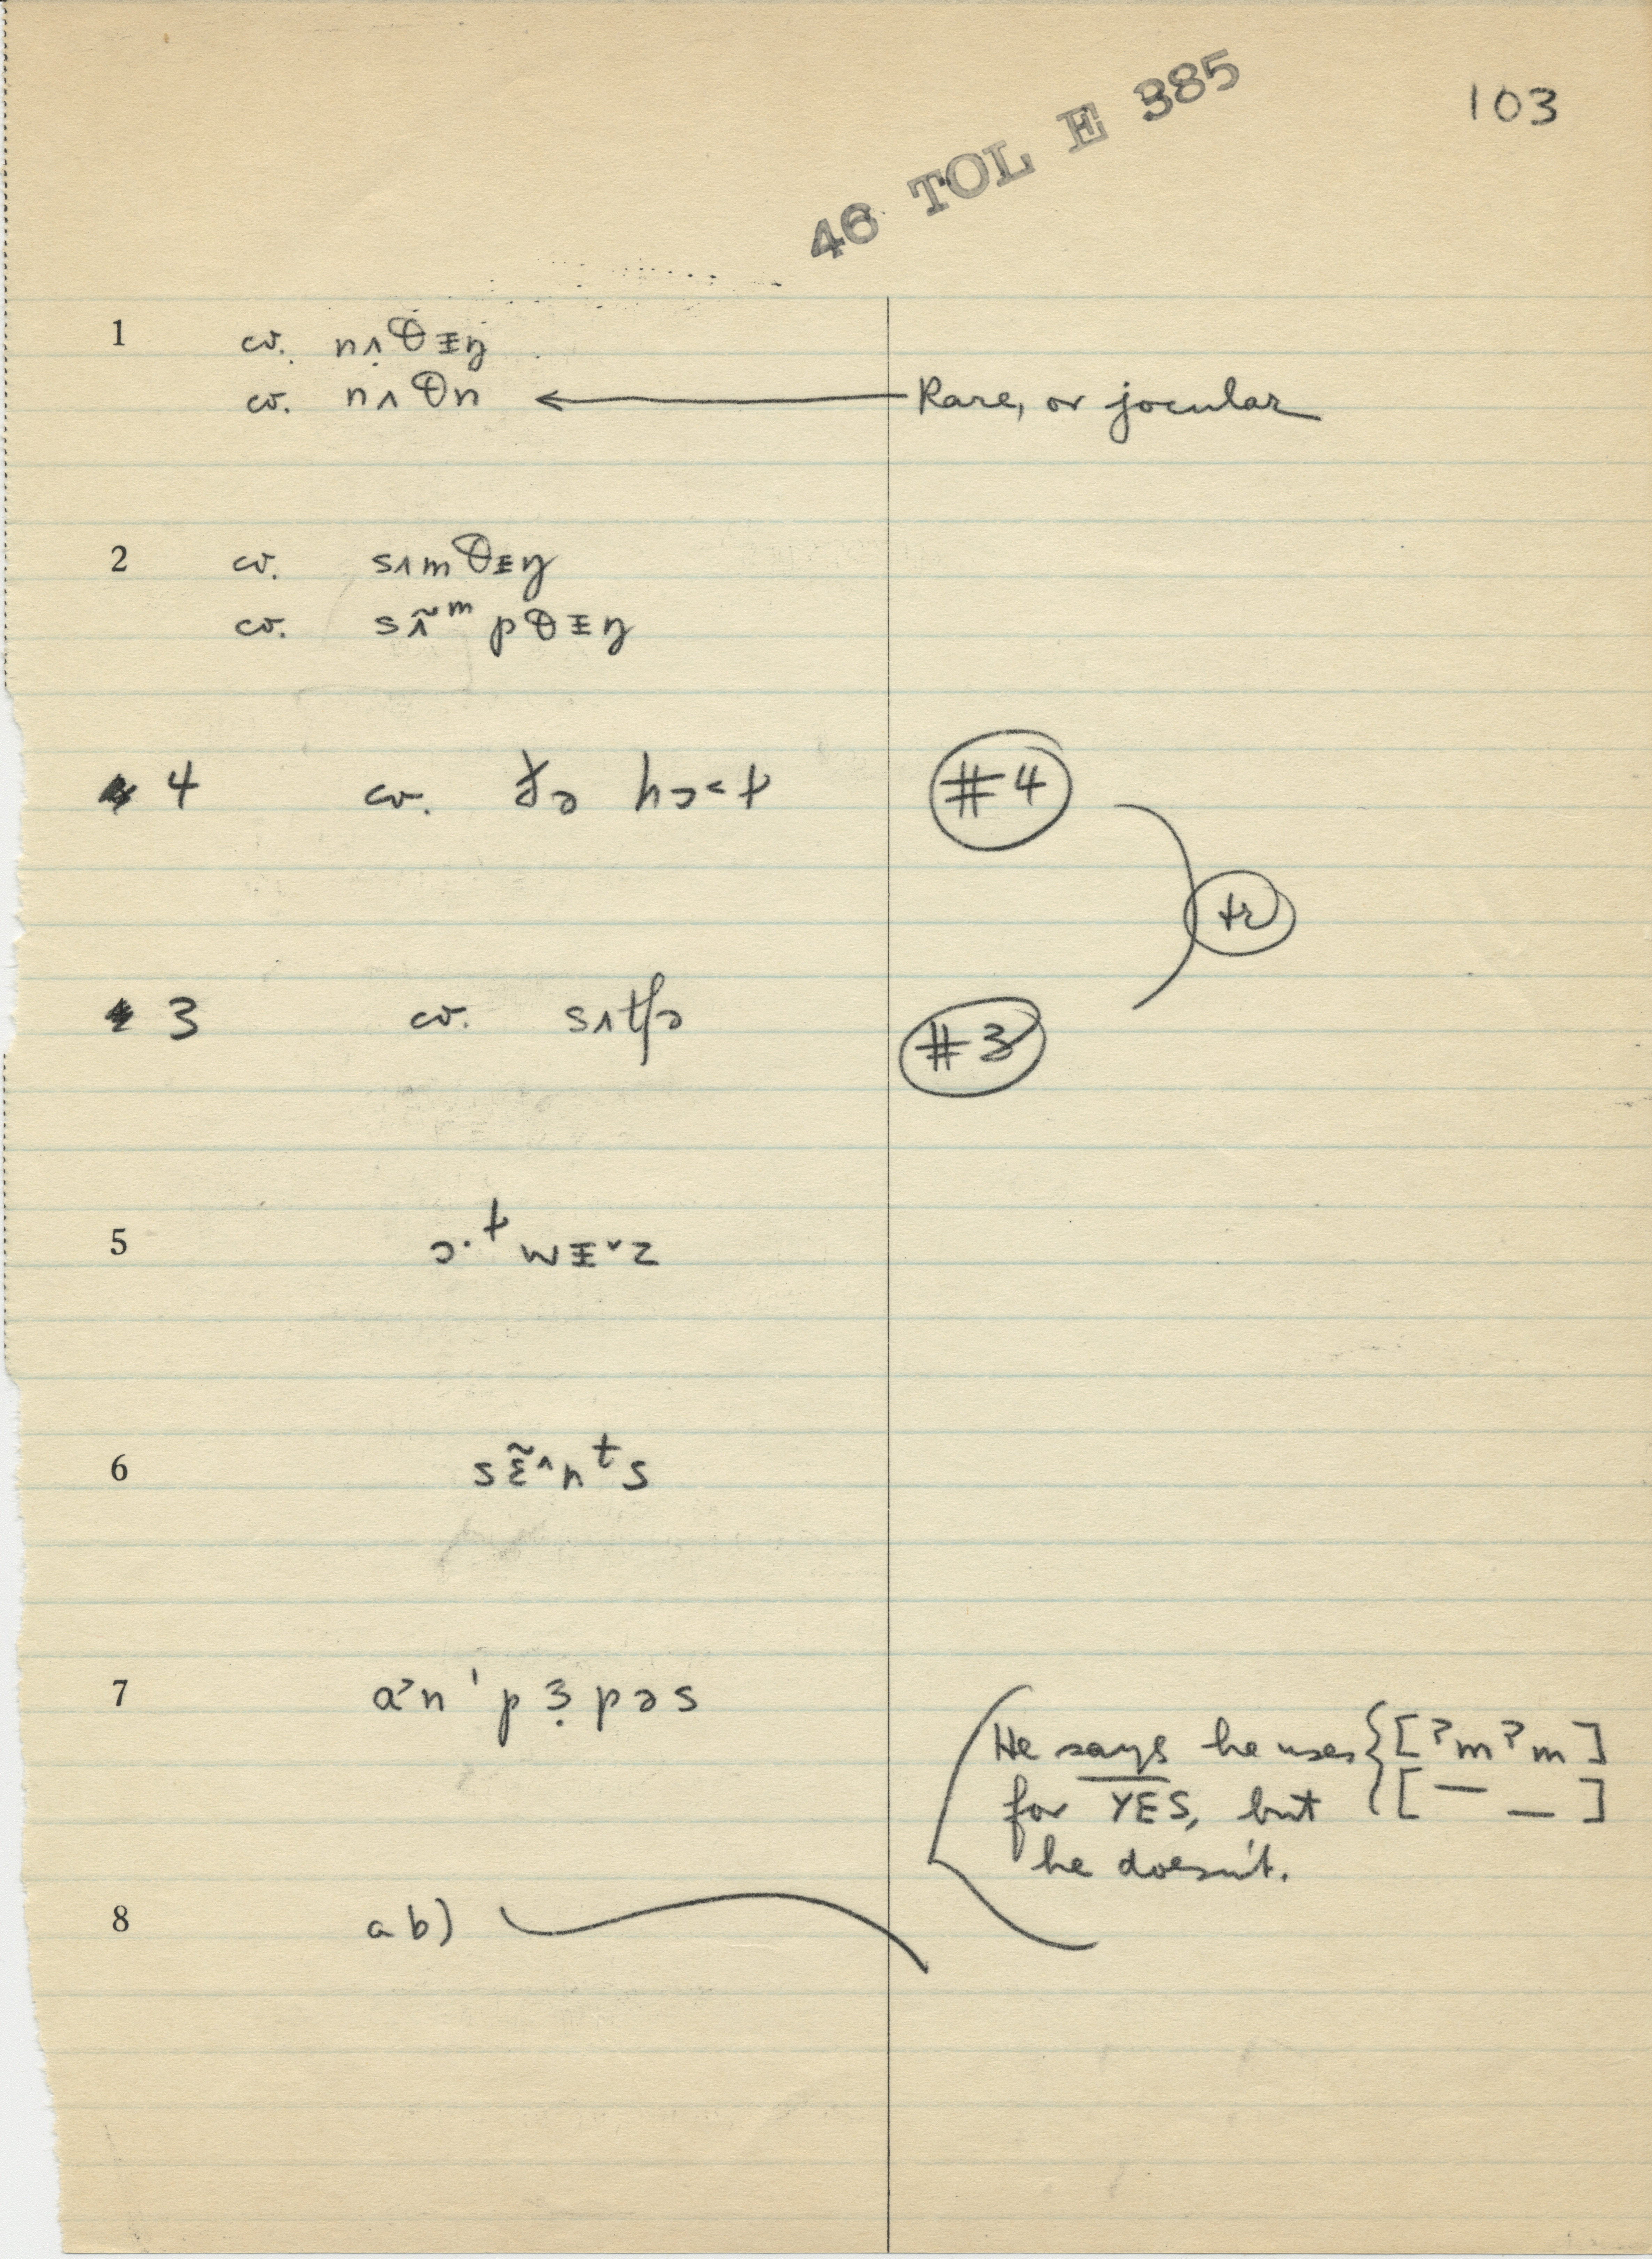 46 TOL E 385
103
1 cv. nʌθɪŋ
cv. nʌθn ← Rare, or jocular
2 cv. sʌmθɪŋ
cv. sʌ̃ᵐpθɪŋ
4 cv. hɔ˂ɫ #4
tr
3 cv. sʌtʃə #3
5 ɔ·ɫwɪ˅z
6 sɛ̃˄nᵗs
7 a˃n ˈpɜ̣pəs
He says he uses {[ʔmʔm]
for YES, but [¯ _]
he doesn't.
8 ab)